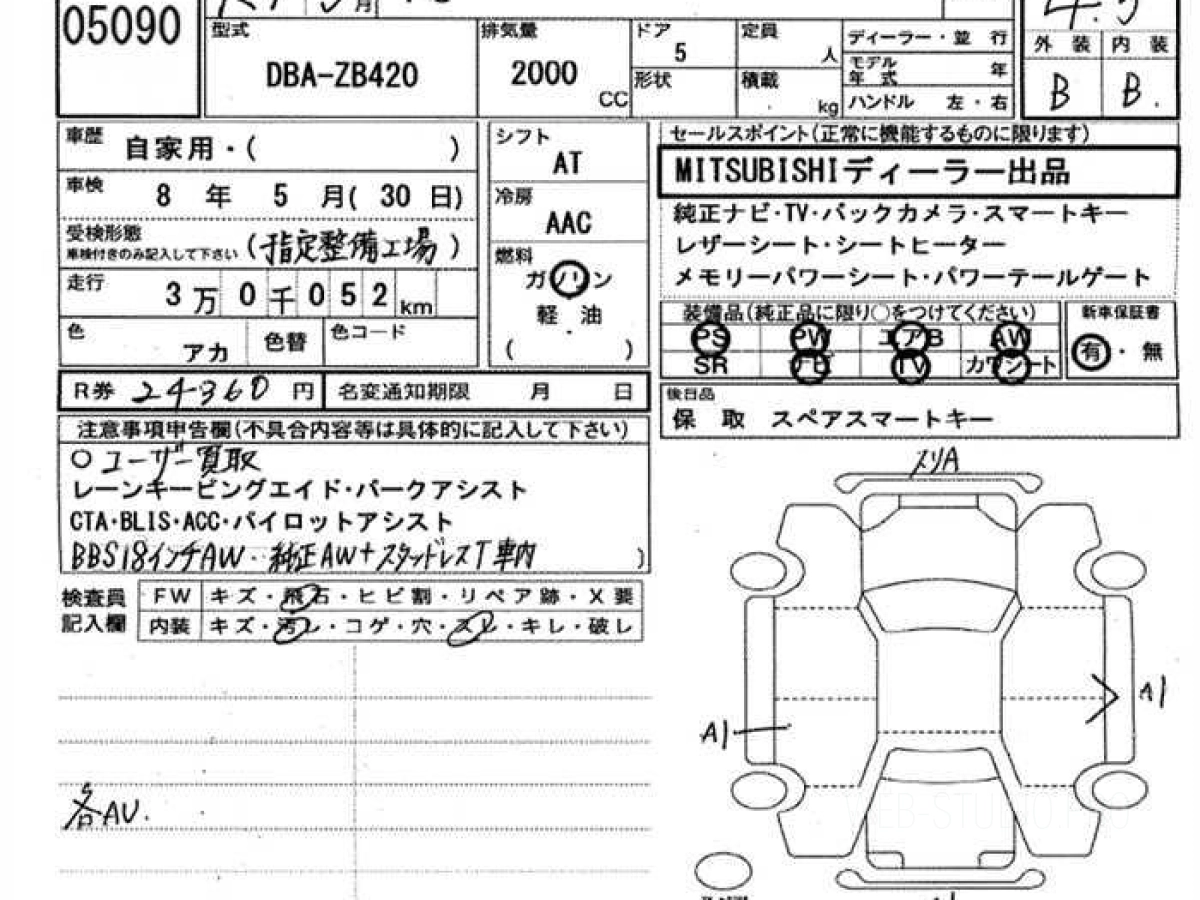 05090
型式
DBA-ZB420
排気量
2000
CC
ドア
5
形状
定員
人
積載
kg
ディーラー・並 行
モデル
年 式 年
ハンドル 左・右
4.5
外 装 内 装
B B.
車歴
自家用・( )
車検
8 年 5 月( 30 日)
受検形態
車検付きのみ記入して下さい (指定整備工場)
走行
3万0千052km
色
アカ
色替
色コード
シフト
AT
冷房
AAC
燃料
ガソリン
軽 油
( )
セールスポイント(正常に機能するものに限ります)
MITSUBISHIディーラー出品
純正ナビ・TV・バックカメラ・スマートキー
レザーシート・シートヒーター
メモリーパワーシート・パワーテールゲート
装備品(純正品に限り○をつけてください)
PS PW エアB AW
SR ナビ TV カワシート
新車保証書
有・無
R券 24360 円
名変通知期限 月 日
後日品
保 取 スペアスマートキー
注意事項申告欄(不具合内容等は具体的に記入して下さい)
○ユーザー買取
レーンキーピングエイド・パークアシスト
CTA・BLIS・ACC・パイロットアシスト
BBS18インチAW‥純正AW+スタッドレスT車内 )
検査員
記入欄
FW キズ・飛石・ヒビ割・リペア跡・X要
内装 キズ・汚レ・コゲ・穴・スレ・キレ・破レ
各AU.
スリA
A1
A1
WEB-STUDIO.PRO